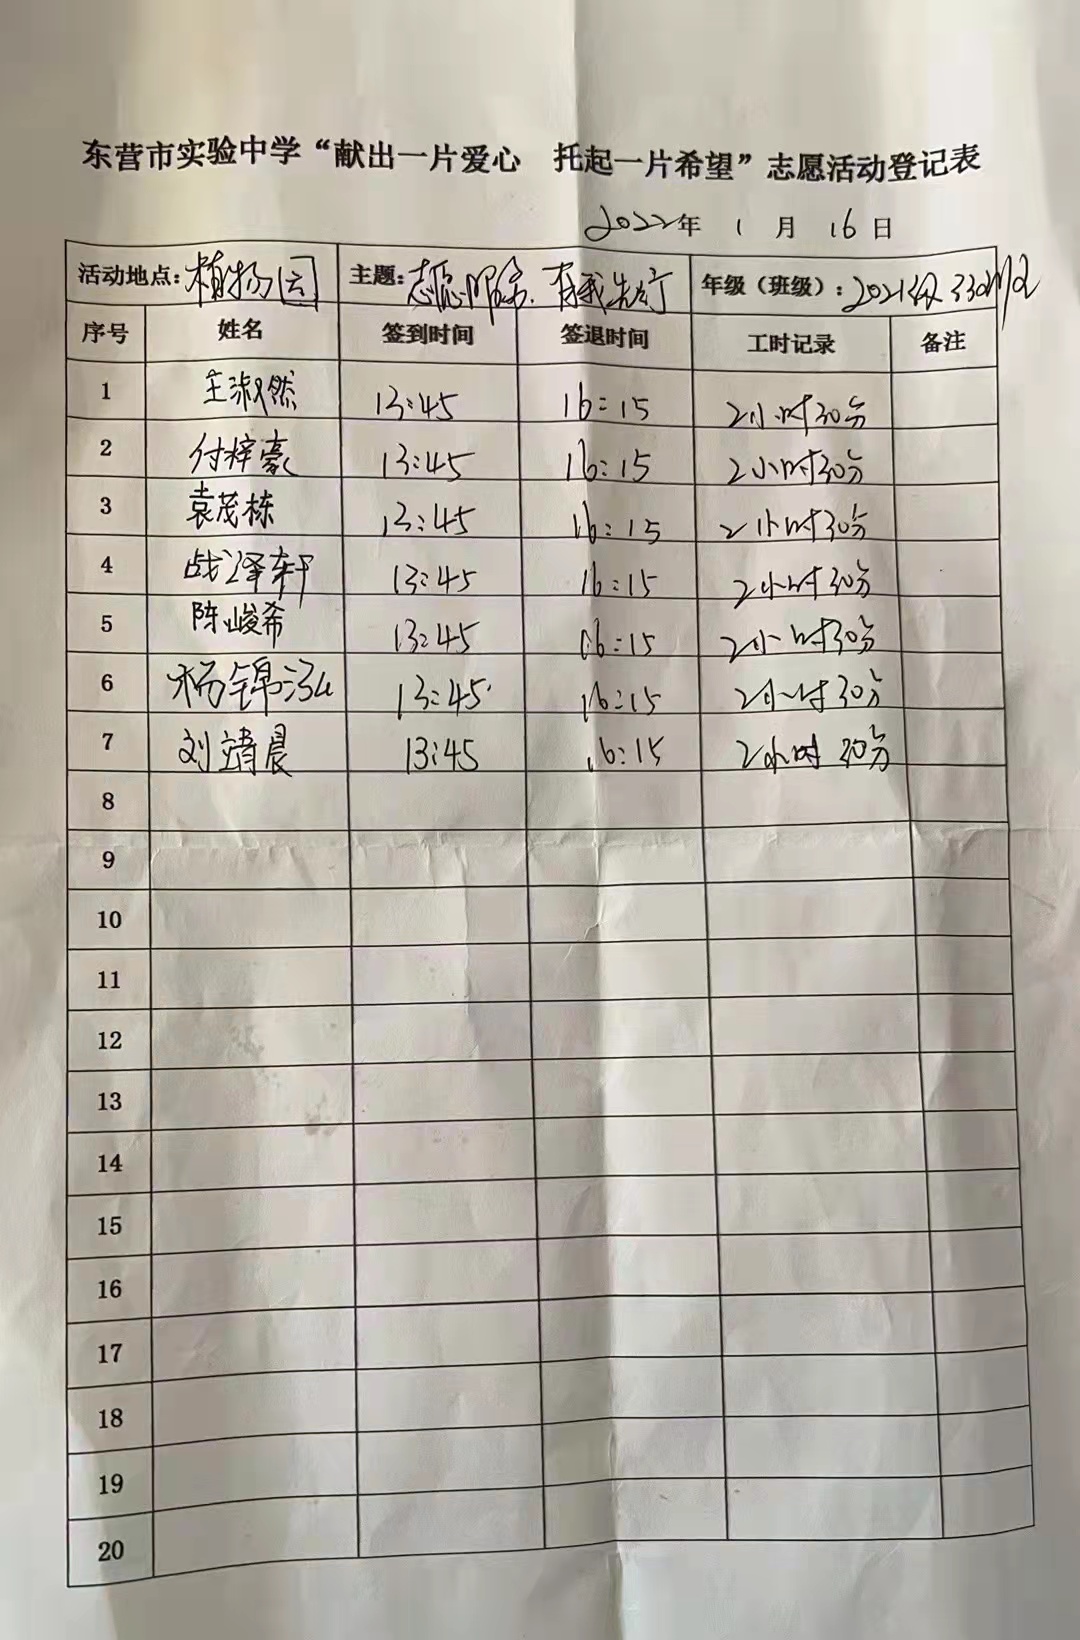 东营市实验中学“献出一片爱心 托起一片希望”志愿活动登记表
2022年 1 月 16日
活动地点:植物园 主题:志愿服务.有我先行 年级（班级）:2021级330
序号 姓名 签到时间 签退时间 工时记录 备注
1 王淑然 13:45 16:15 2小时30分
2 付梓豪 13:45 16:15 2小时30分
3 袁茂栋 13:45 16:15 2小时30分
4 战泽轩 13:45 16:15 2小时30分
5 陈峻希 13:45 16:15 2小时30分
6 杨锦泓 13:45 16:15 2小时30分
7 刘靖晨 13:45 16:15 2小时30分
8
9
10
11
12
13
14
15
16
17
18
19
20